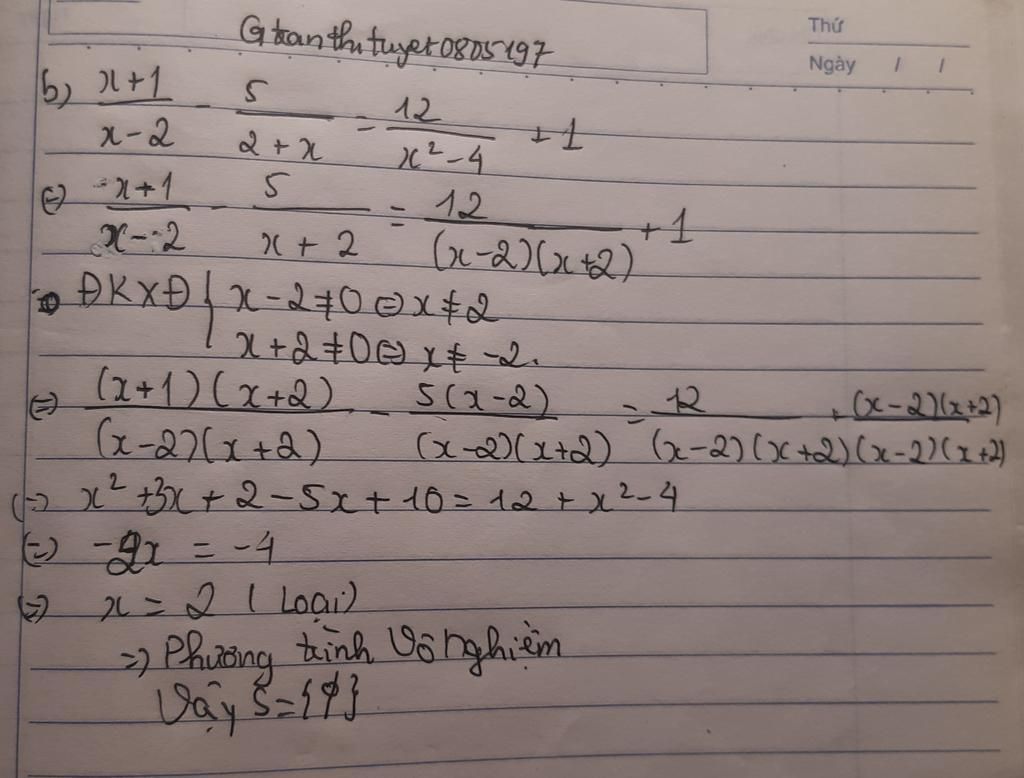 Gtranthituyet0805197
Thứ
Ngày / /
b) x+1/x-2 - 5/2+x = 12/x²-4 + 1
(=) x+1/x-2 - 5/x+2 = 12/(x-2)(x+2) + 1
ĐKXĐ { x-2≠0 (=) x≠2
x+2≠0 (=) x≠-2.
(=) (x+1)(x+2)/(x-2)(x+2) - 5(x-2)/(x-2)(x+2) = 12/(x-2)(x+2) + (x-2)(x+2)/(x-2)(x+2)
(=) x²+3x+2-5x+10=12+x²-4
(=) -2x = -4
(=) x = 2 (Loại)
=) Phương trình Vô nghiệm
Vậy S={∅}